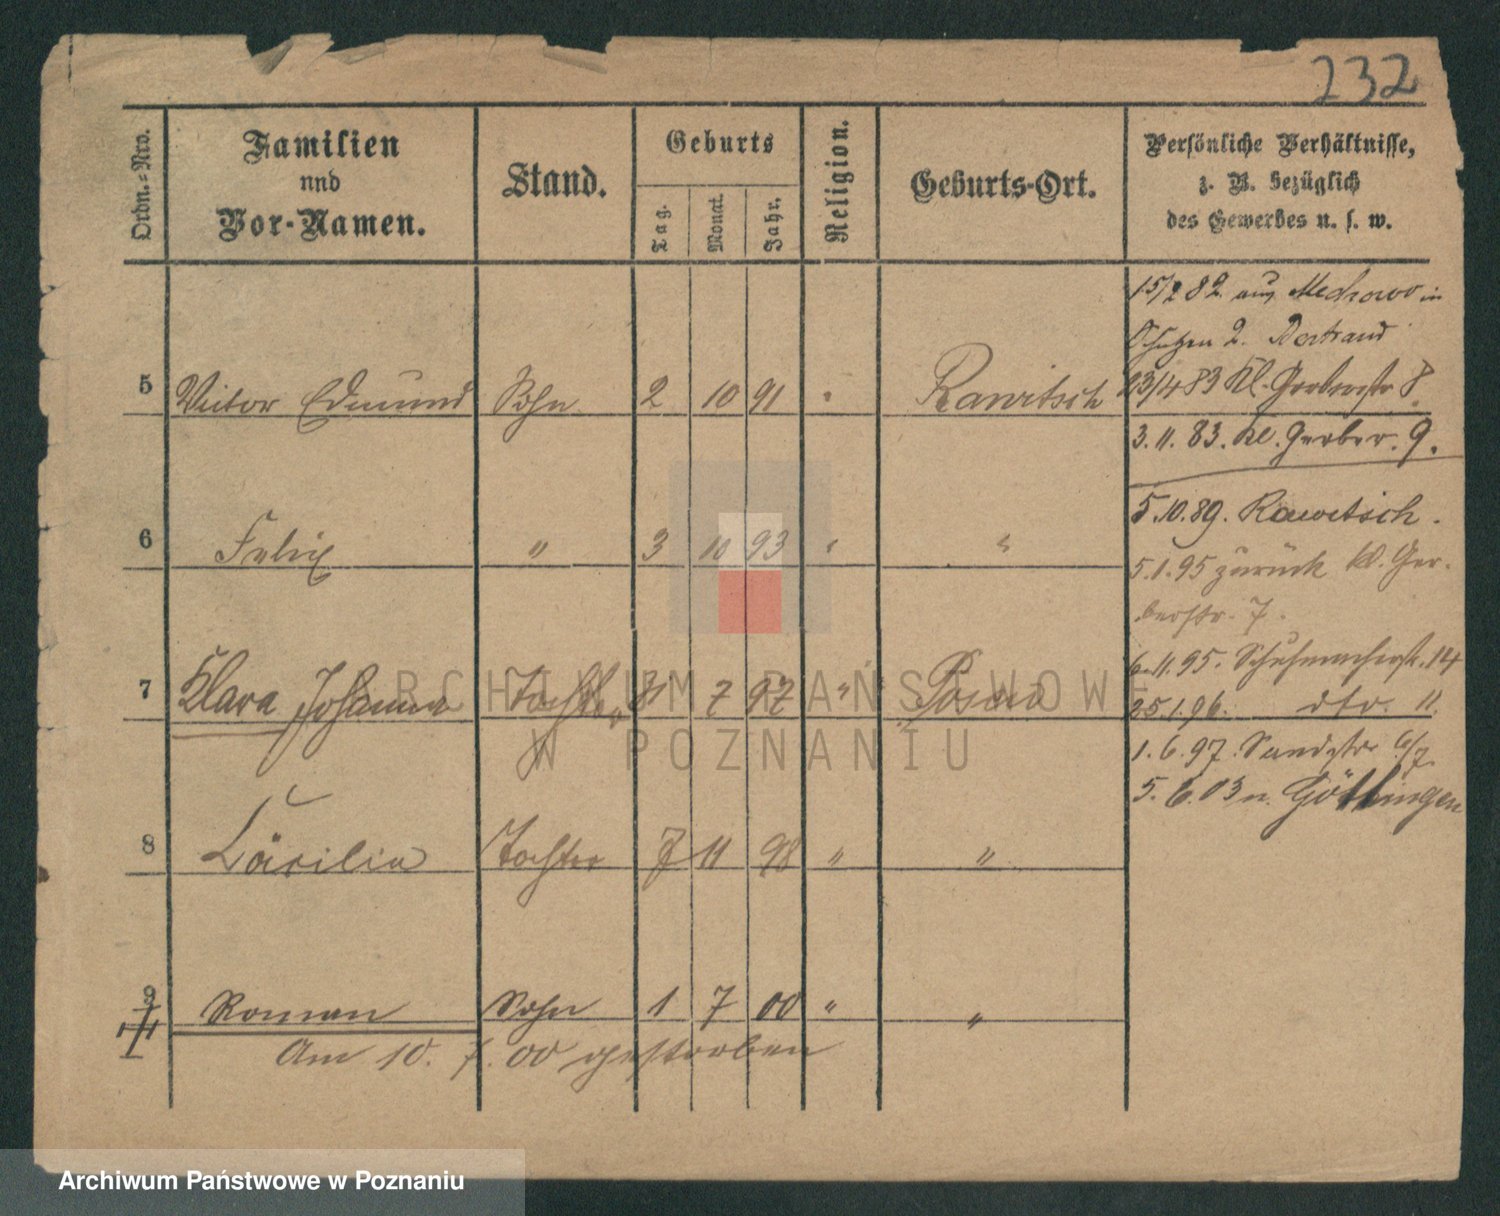 232
Ordn.-Nro.
Familien
und
Vor-Namen.
Stand.
Geburts
Tag.
Monat.
Jahr.
Religion.
Geburts-Ort.
Persönliche Verhältnisse,
z. B. bezüglich
des Gewerbes u. s. w.
15/2 82 aus Mechowo in
2. Bertrand
23/4 83 Kl. Gerberstr 8.
5 Victor Edmund Sohn 2 10 91 " Rawitsch
3. 11. 83. Kl. Gerber. 9.
5.10.89. Rawitsch.
6 Felix " 3 10 93 " "
5.1.95 zurück kl. Ger-
berstr. 7.
6.11.95. Schuhmacherstr. 14
7 Klara Johanna Tochter 8 7 97 " Posen
25.1.96. dto. 11.
1.6.97. Sandstr 6/7.
5.6.03 n. Göttingen
8 Cäcilia Tochter 7 11 98 " "
9 Roman Sohn 1 7 00 " "
Am 10. 7. 00 gestorben
ARCHIWUM PAŃSTWOWE
W POZNANIU
Archiwum Państwowe w Poznaniu